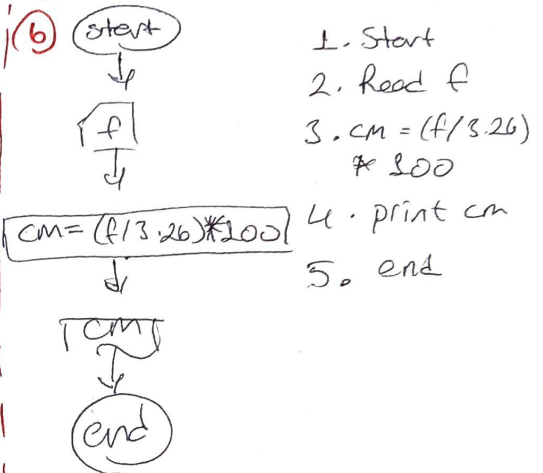 6
start
f
cm = (f/3.26)*100
cm
end
1. Start
2. Read f
3. cm = (f/3.26)
* 100
4. print cm
5. end